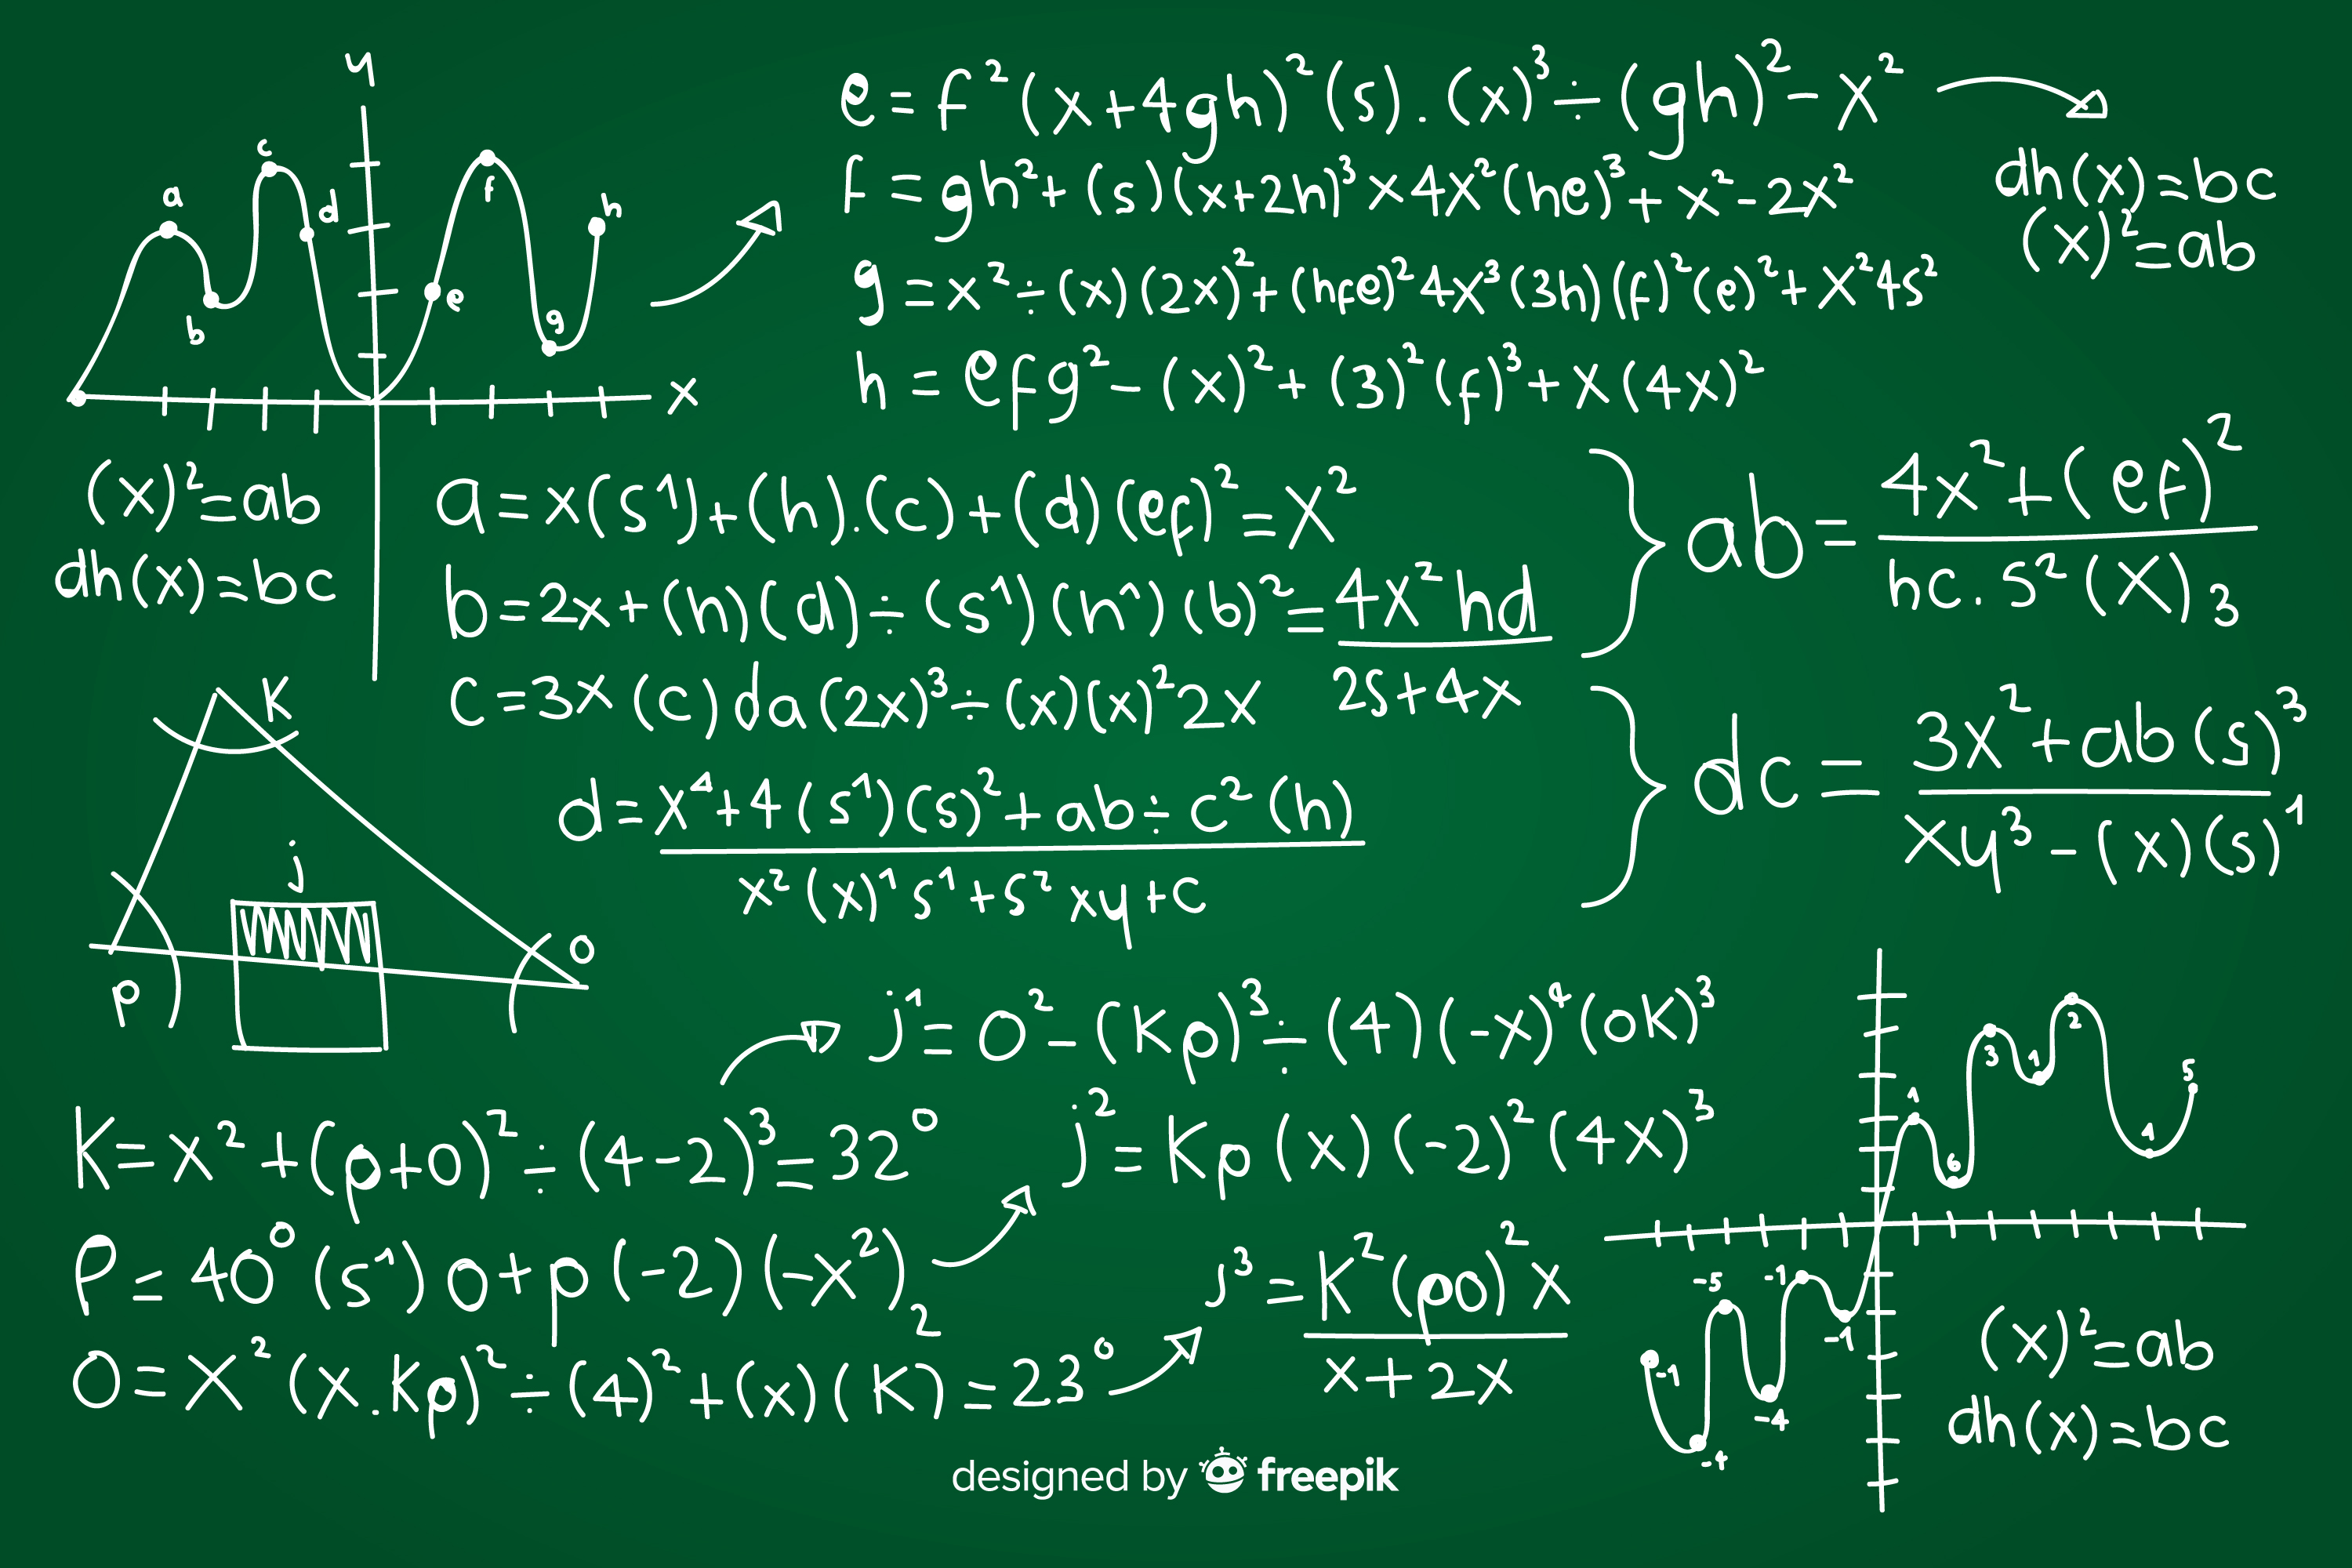 y
a b c d e f g h
x
e = f²(x+4gh)²(s).(x)³÷(gh)²-x²
f = gh²+(s)(x+2h)³×4x²(he)³+x²-2x²
g = x²÷(x)(2x)²+(hfe)²4x³(3h)(f)²(e)²+x²4s²
h = efg²-(x)²+(3)²(f)³+x(4x)²
dh(x)=bc
(x)²=ab
(x)²=ab
dh(x)=bc
a=x(s¹)+(h).(c)+(d)(ef)²=x²
b=2x+(h)(d)÷(s¹)(h^)(b)²=4x²hd
2s+4x
c=3x(c)da(2x)³÷(x)(x)²2x
d=x⁴+4(s¹)(s)²+ab÷c²(h)
x²(x)¹s¹+s²xy+c
ab=4x²+(ef)²
hc.s²(x)₃
dc=3x²+ab(s)³
xy³-(x)(s)¹
K
j
P
O
j¹=O²-(Kp)³÷(4)(-x)⁴(OK)³
j²=Kp(x)(-2)²(4x)³
j³=K²(po)²x
x+2x
K=x²+(p+O)²÷(4-2)³=32°
P=40°(s¹)O+p(-2)(-x²)₂
O=x²(x.Kp)²÷(4)²+(x)(K)=23°
1 6 3 1 2 1 5
-1 -4 -5 -4 -1 -1
(x)²=ab
dh(x)=bc
designed by freepik